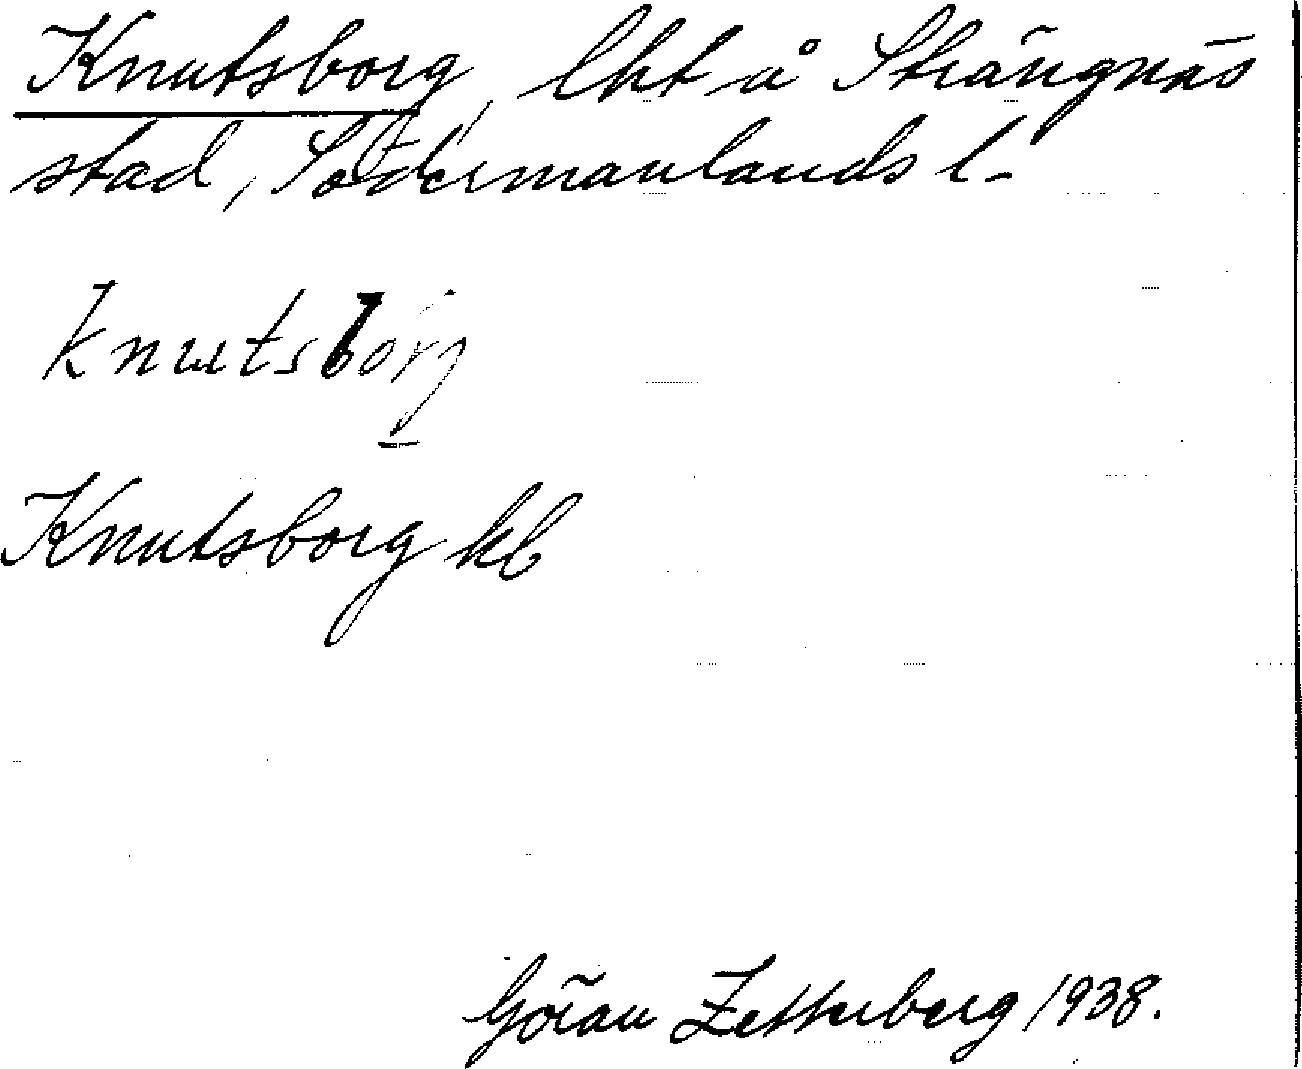 Knutsborg, lht å Strängnäs
stad, Södermanlands l.
knutsborj
Knutsborg kb
Göran Zetterberg 1938.